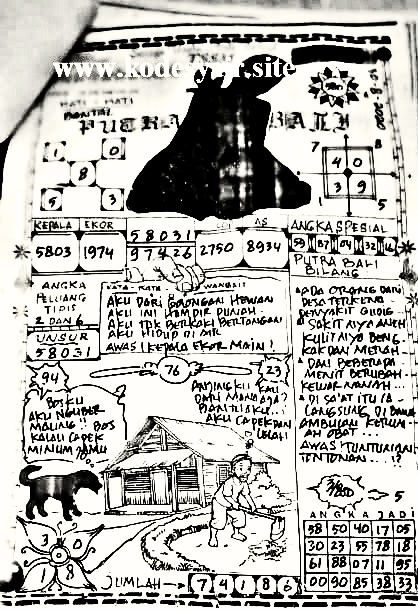 www.kodesyair.site
HATI - HATI
PUTRA BALI
30-8-2020
1 0
8
5 3
7 8
4 0
3 9
1 5
KEPALA EKOR
5803 1974
58031
97426
AS
2750 8934
ANGKA SPESIAL
59 87 04 32 16
PUTRA BALI
BILANG
ANGKA
PELUANG
TIPIS
2 DAN 6
UNSUR
58031
KATA - KATA WANGSIT
AKU DARI GOLONGAN HEWAN
AKU INI HAMPIR PUNAH
AKU TDK BERKAKI BERTANGAN
AKU HIDUP DI AIR
AWAS! KEPALA EKOR MAIN!
ADA ORANG DARI
DESA TERKENA
PENYAKIT
SAKITNYA ANEH
KULITNYA BENG-
KAK DAN MERAH
DAN BEBERAPA
MENIT BERUBAH
KELUAR NANAH...
DI SA'AT ITU IA
LANGSUNG DI BAWA
AMBULAN KERUM-
AH OBAT...
AWAS TUNTUNGAN
TONTONAN...!?
94
76
23
BOSKU
AKU NGUBER
MALING!! BOS
KALAU CAPEK
MINUM JAMU
ANJINGKU KAU
DARI MANA AJA?
AKU CAPEK DAN
LELAH
3 0
1 8
JUMLAH → 74186
5
ANGKA JADI
58 50 40 17 05
30 23 55 78 18
61 88 07 11 95
00 90 85 38 33